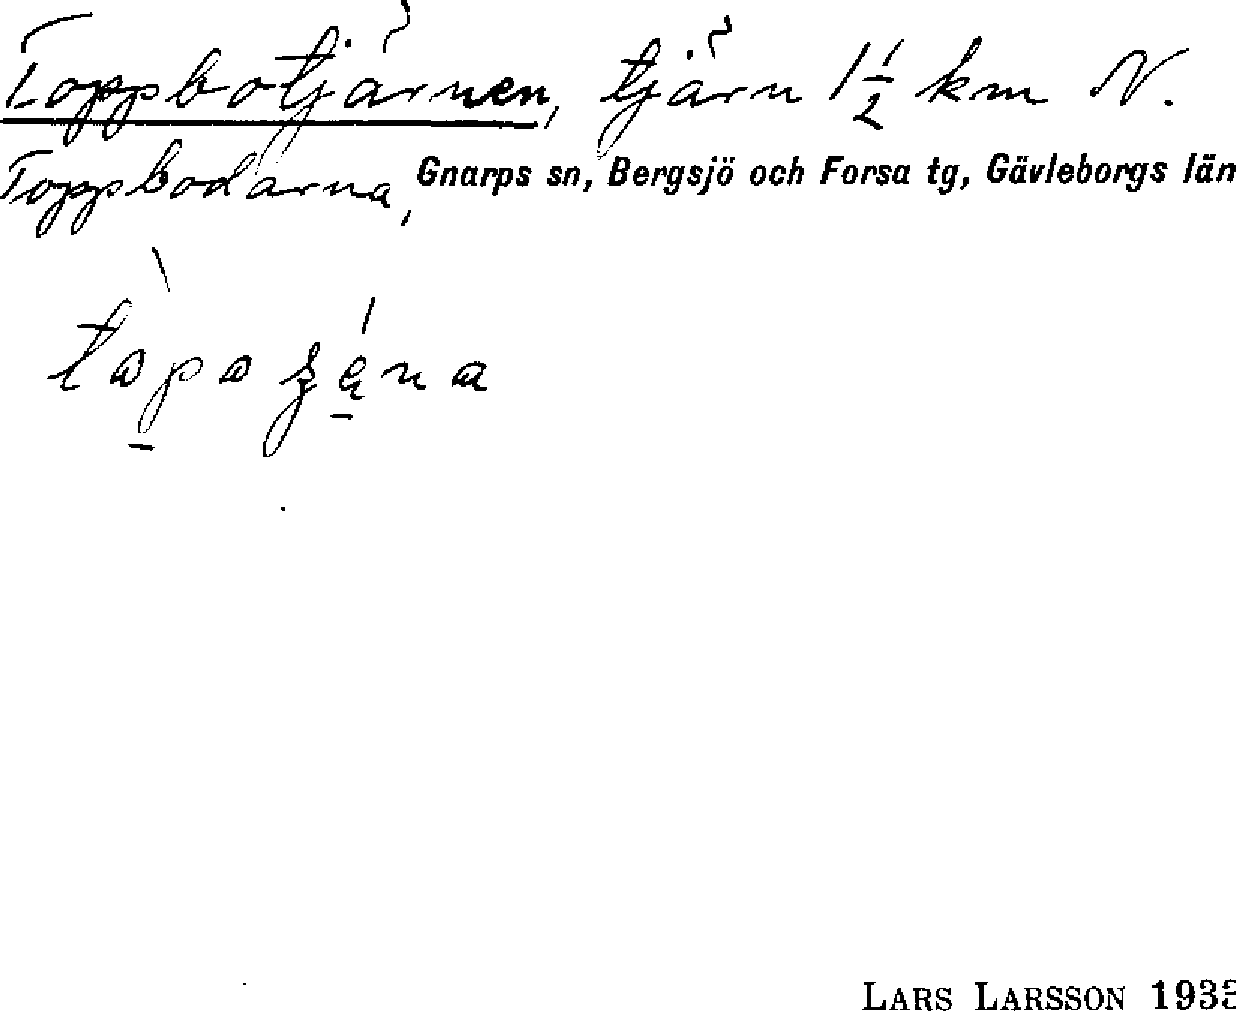 Toppbotjärnen, tjärn 1 1/2 km N.
Toppbodarna, Gnarps sn, Bergsjö och Forsa tg, Gävleborgs län
LARS LARSSON 193